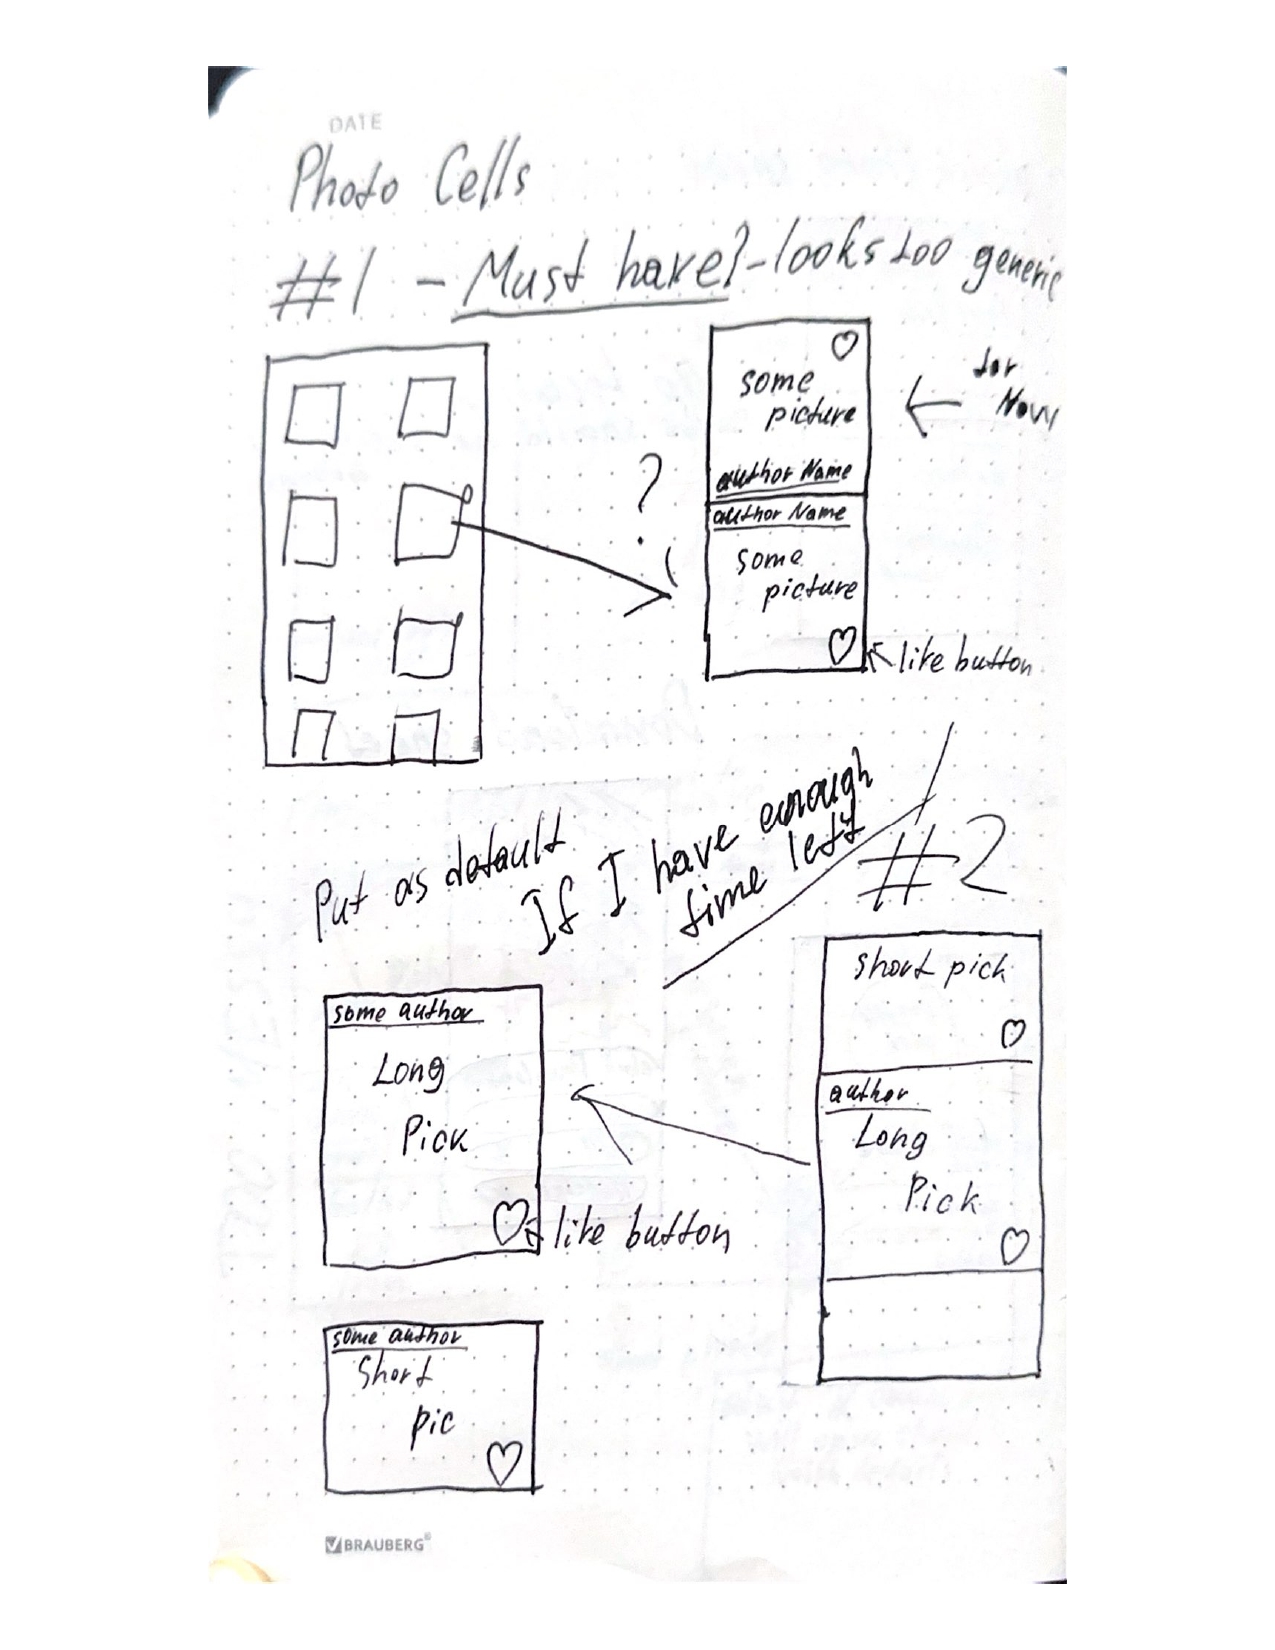 DATE
Photo Cells
#1 - Must have? - looks too generic
some
picture
author Name
author Name
some
picture
for
Now
?
like button
Put as default
If I have enough
time left
#2
short pick
author
Long
Pick
some author
Long
Pick
like button
some author
Short
pic
BRAUBERG®